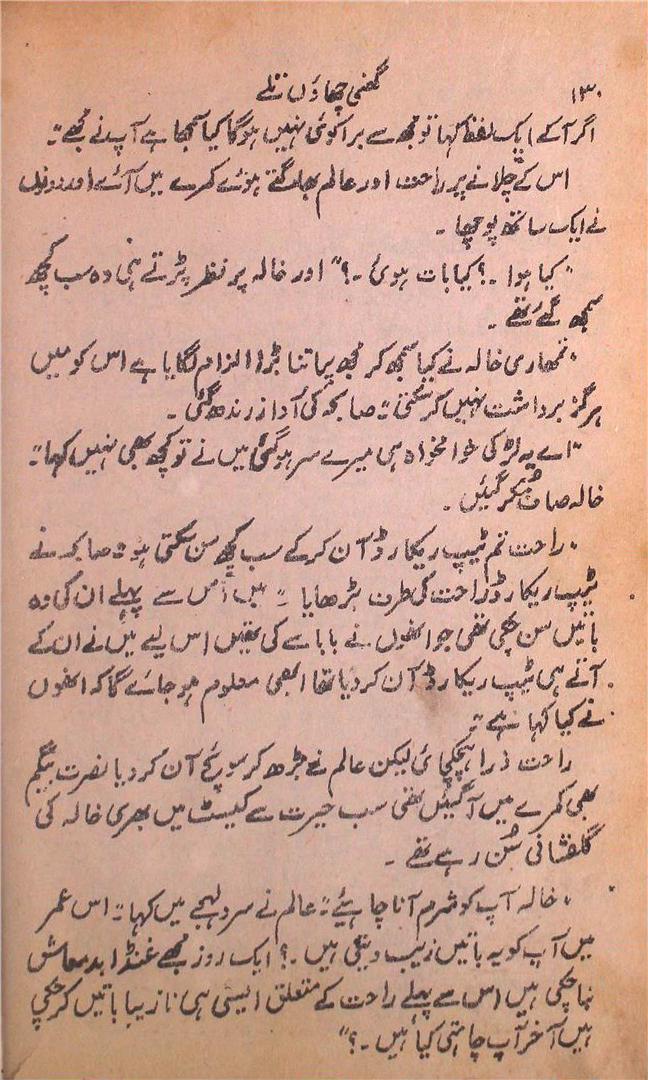 ۱۳۰
گھنی چھاؤں تلے
اگر آکے ایک لفظ کہا تو مجھ سے برا کوئی نہیں ہوگا کیا سمجھا ہے آپ نے مجھے"۔
اس کے چلّانے پر راحت اور عالم بھاگتے ہوئے کمرے میں آئے اور دونوں
نے ایک ساتھ پوچھا۔
"کیا ہوا۔؟ کیا بات ہوئی۔؟" اور خالہ پر نظر پڑتے ہی وہ سب کچھ
سمجھ گئے تھے۔
"تمھاری خالہ نے کیا سمجھ کر مجھ پر اتنا بڑا الزام لگایا ہے اس کو میں
ہرگز برداشت نہیں کرسکتی"۔ صابحہ کی آواز رندھ گئی۔
"اے یہ لڑکی خوامخواہ ہی میرے سر ہوگئی میں نے تو کچھ بھی نہیں کہا"۔
خالہ صاف مُکر گئیں۔
"راحت تم ٹیپ ریکارڈ آن کرکے سب کچھ سن سکتی ہو" صابحہ نے
ٹیپ ریکارڈ راحت کی طرف بڑھایا "میں اُس سے پہلے ان کی وہ
باتیں سن چکی تھی جو انھوں نے بابا سے کی تھیں اس لیے میں نے ان کے
آتے ہی ٹیپ ریکارڈ آن کردیا تھا ابھی معلوم ہوجائے گا کہ انھوں
نے کیا کہا ہے"۔
راحت ذرا ہچکچائی لیکن عالم نے بڑھ کر سوئچ آن کردیا نصرت بیگم
بھی کمرے میں آگئیں تھی سب حیرت سے کیسٹ میں بھری خالہ کی
گلفشانی سُن رہے تھے۔
"خالہ آپ کو شرم آنا چاہیئے"۔ عالم نے سرد لہجے میں کہا "اس عمر
میں آپ کو یہ باتیں زیب دیتی ہیں۔؟ ایک روز مجھے غنڈا بدمعاش
بنا چکی ہیں اس سے پہلے راحت کے متعلق ایسی ہی نازیبا باتیں کرچکی
ہیں آخر آپ چاہتی کیا ہیں۔؟"